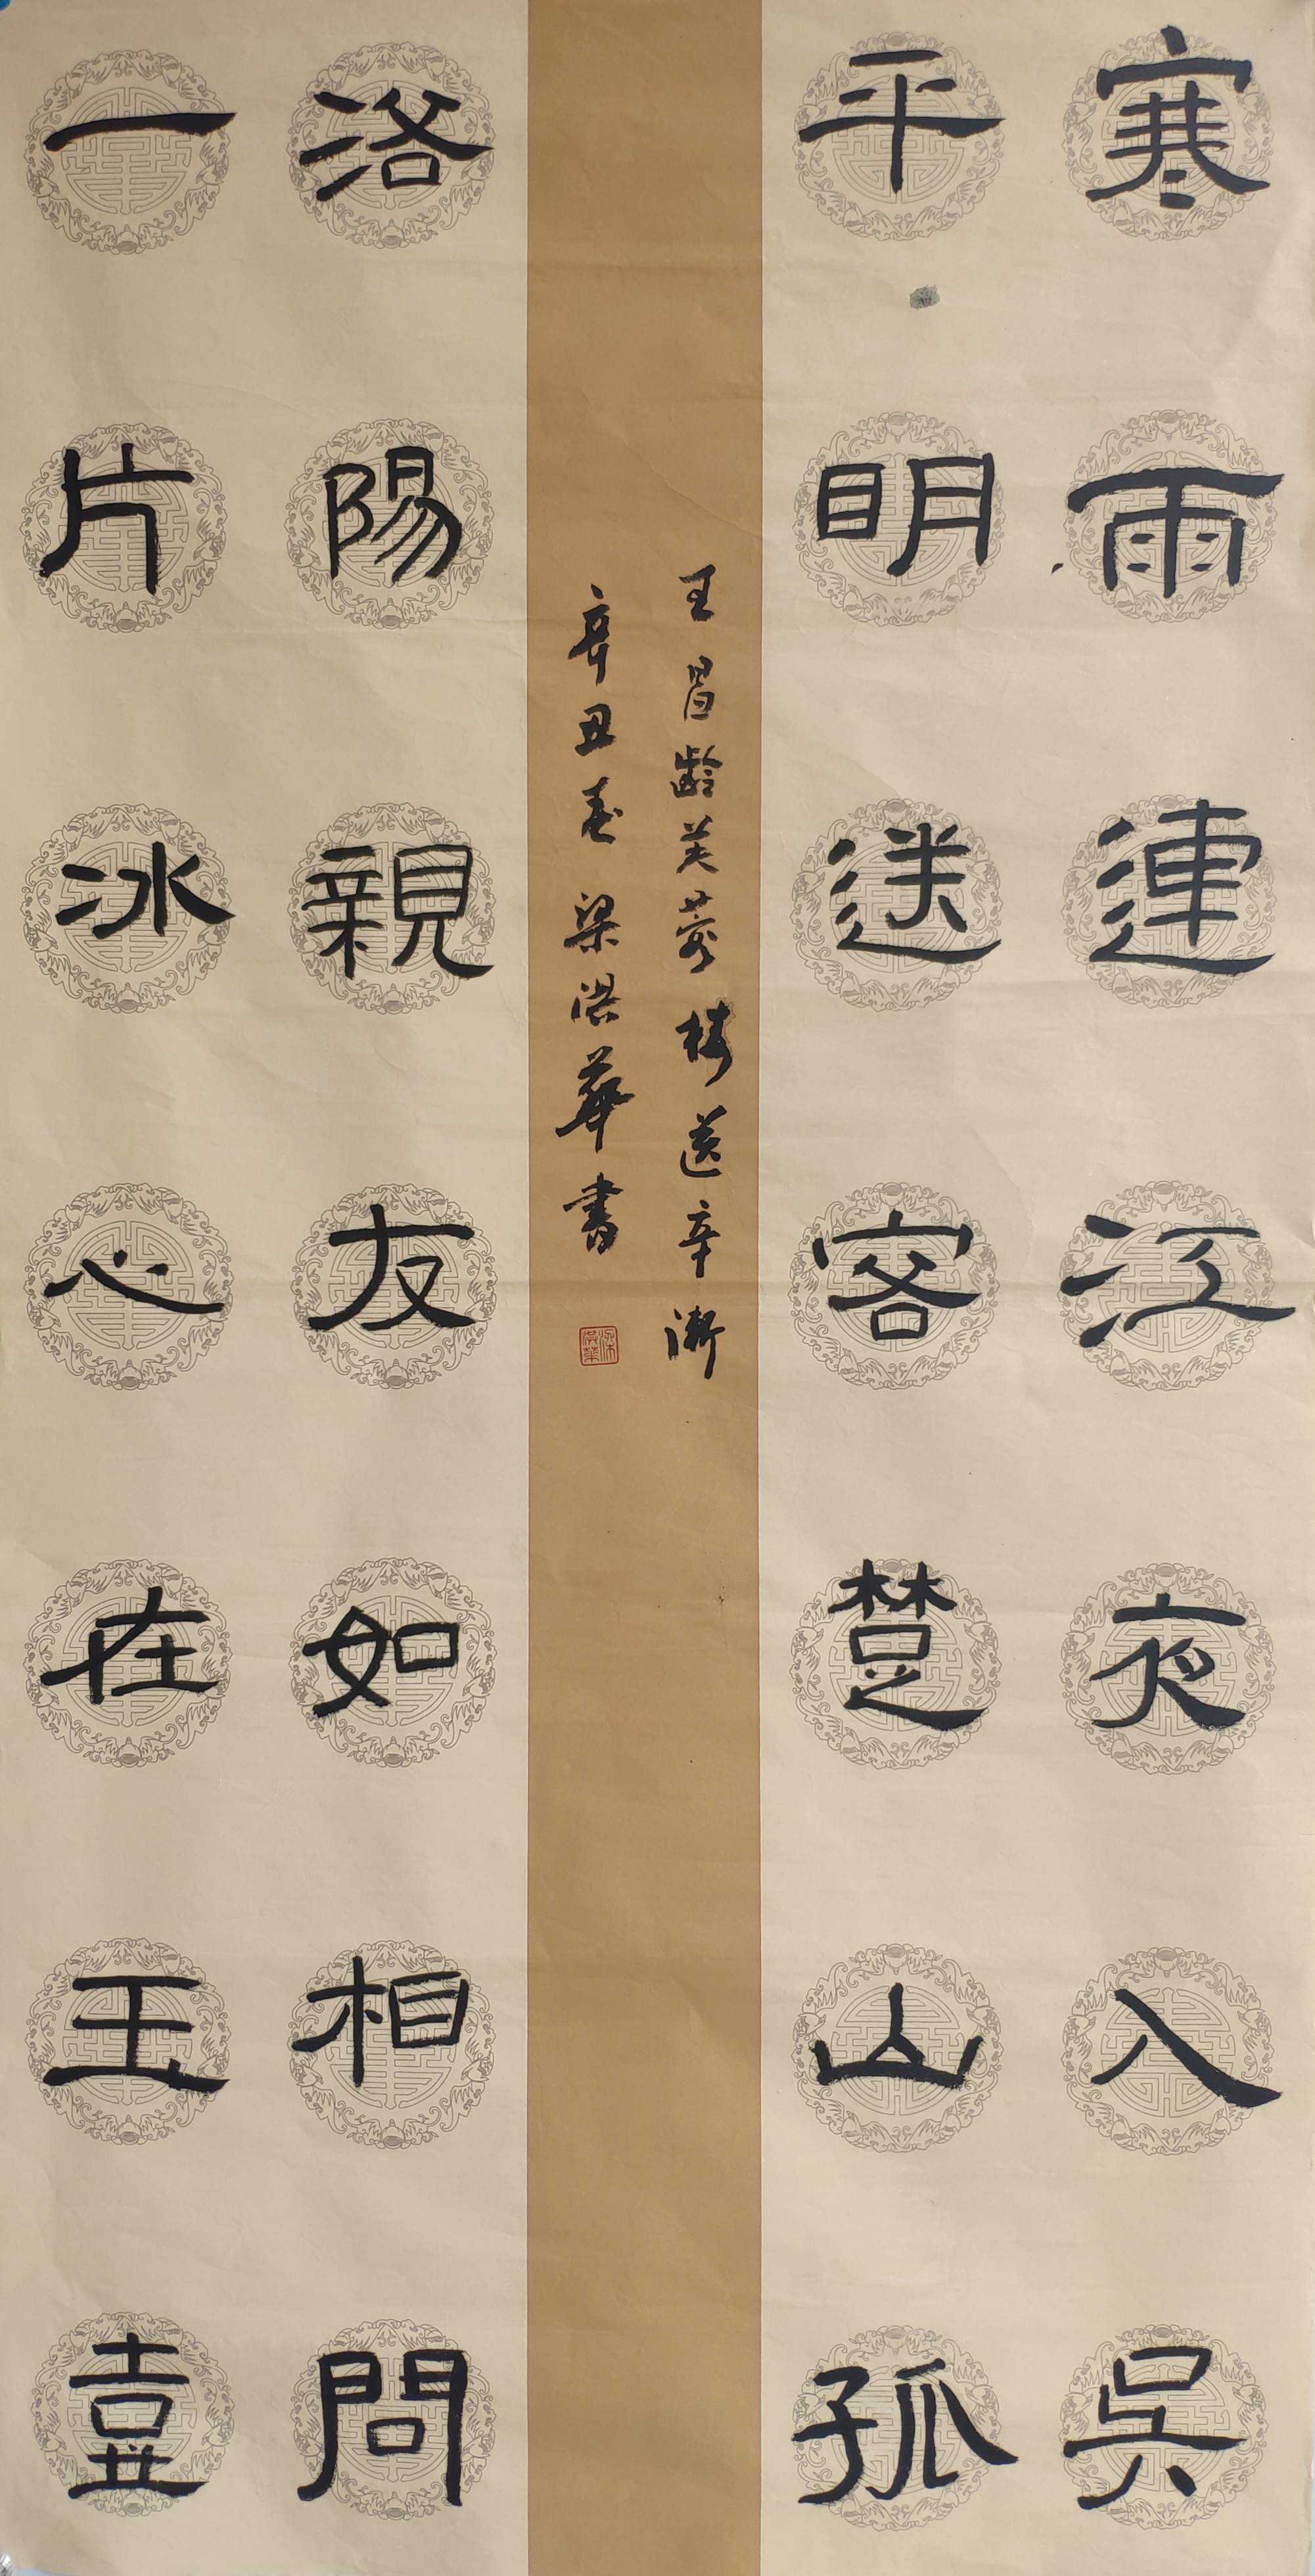 寒雨連江夜入吳
平明送客楚山孤
王昌齡芙蓉樓送辛漸
辛丑春梁洪華書
梁洪華
洛陽親友如相問
一片冰心在玉壺